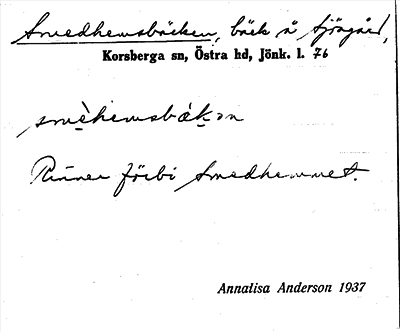 Smedhemsbäcken, bäck å Sjögård,
Korsberga sn, Östra hd, Jönk. l. 76
smèhemsbäkən
Rinner förbi Smedhemmet.
Annalisa Anderson 1937